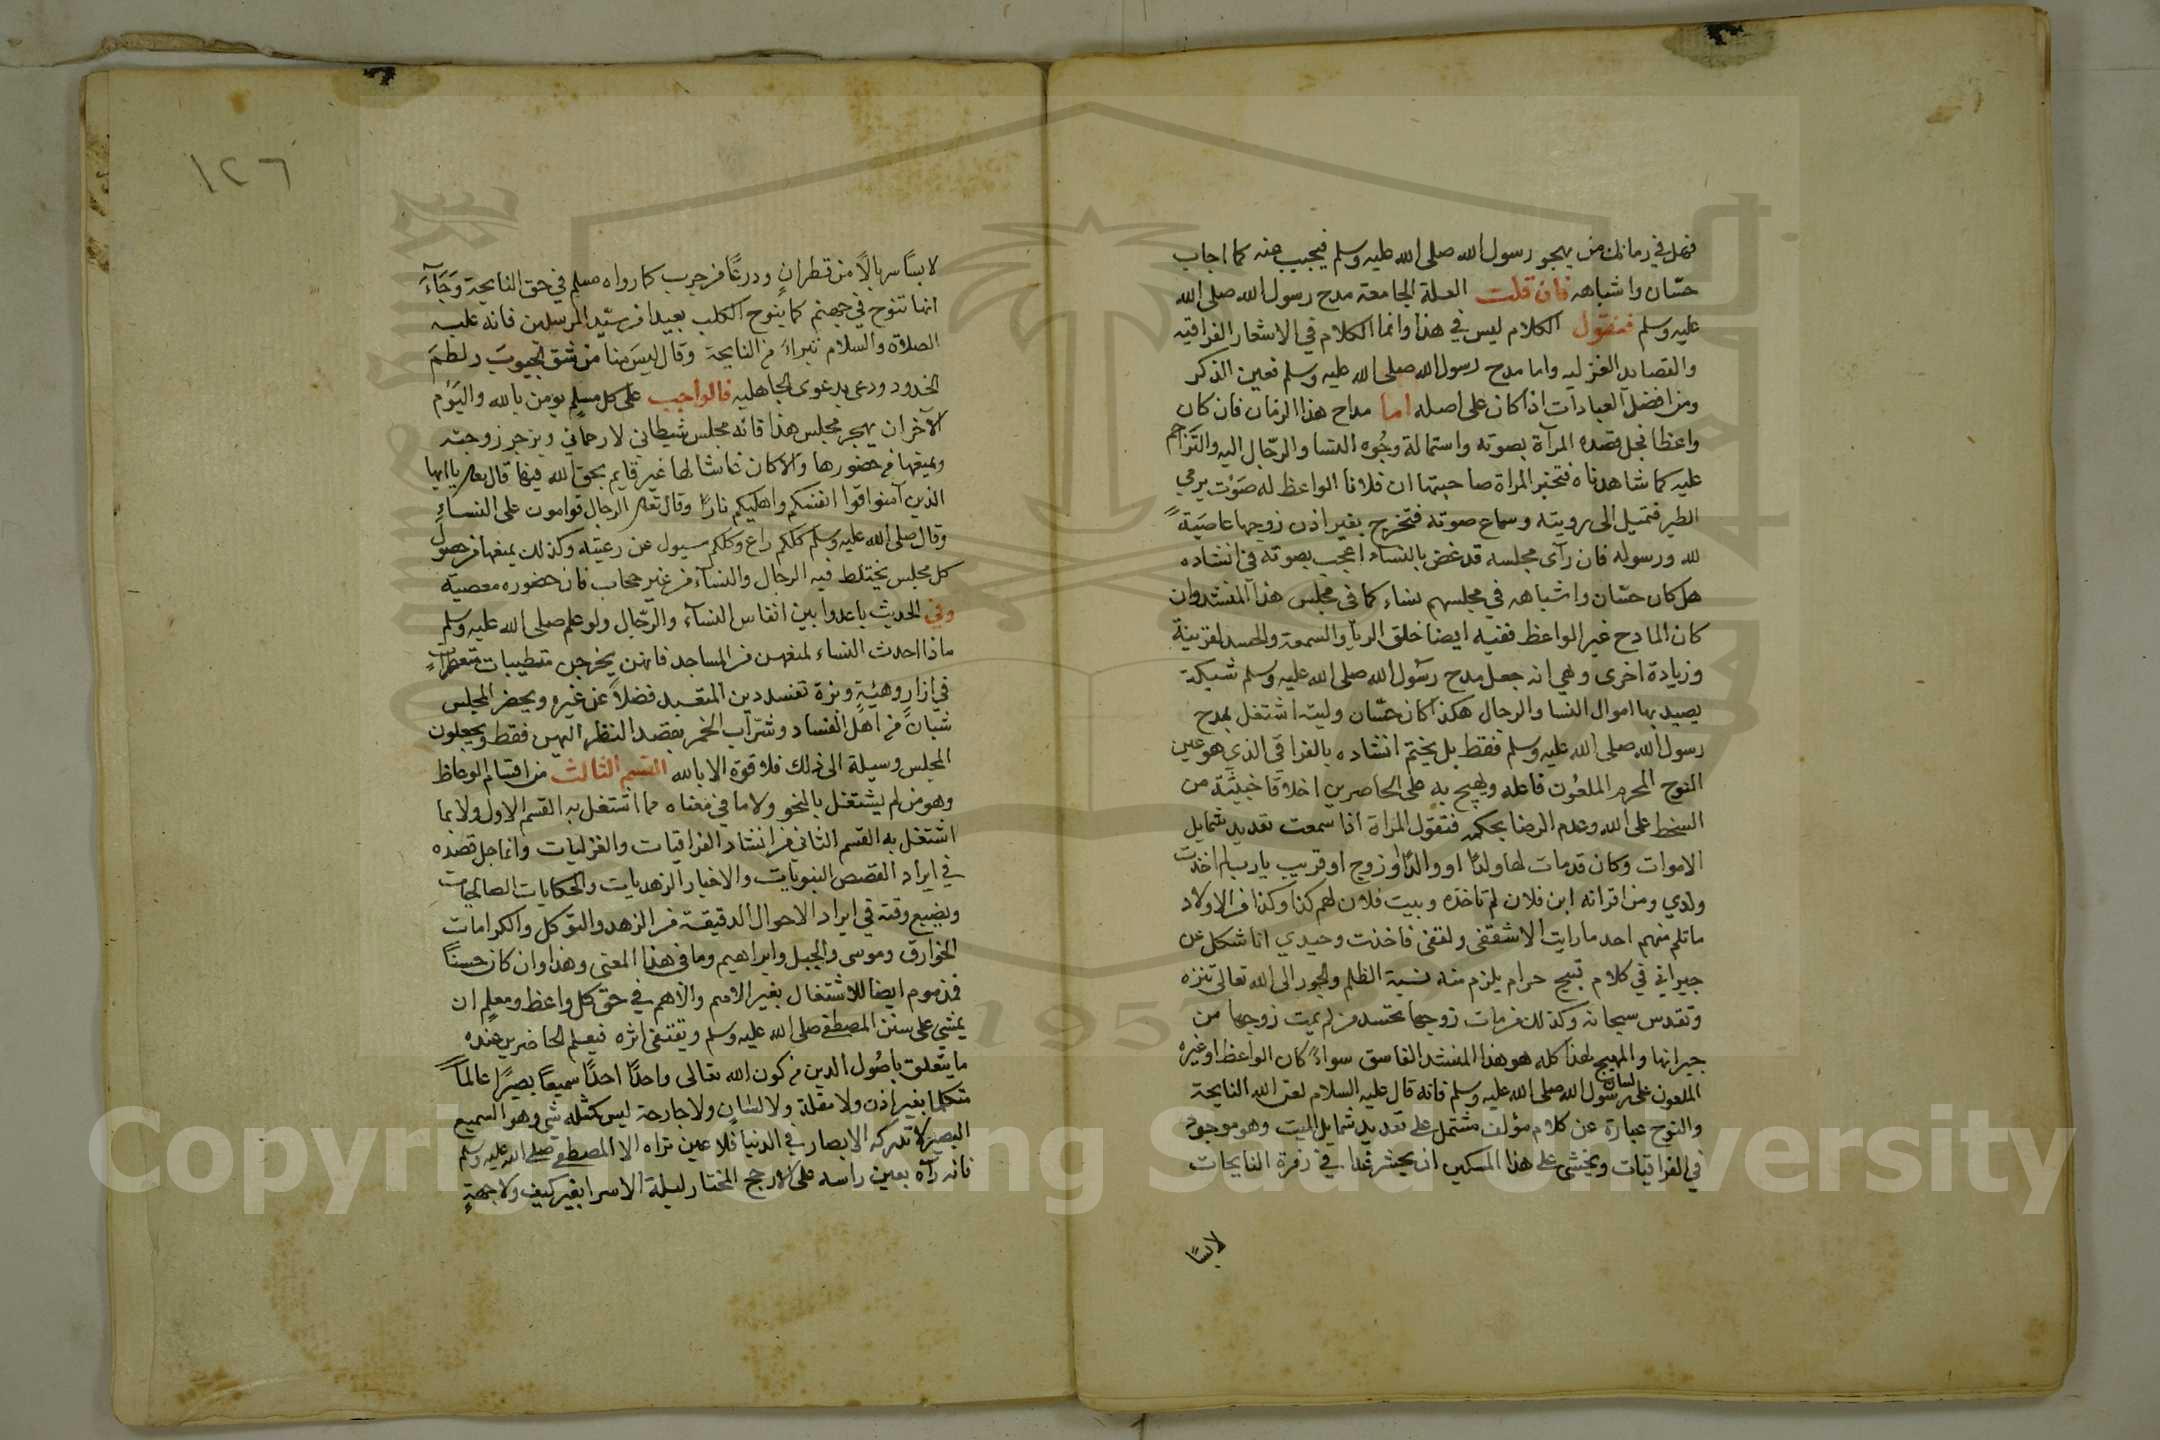 فهل في زمانك من يهجو رسول الله صلى الله عليه وسلم فيجيب عنه كما اجاب
حسّان واشباهه فان قلت العلة الجامعة مدح رسول الله صلى الله
عليه وسلم فنقول الكلام ليس في هذا وانما الكلام في الاشعار الفراقيه
والقصايد الغزليه واما مدح رسول الله صلى الله عليه وسلم فعين الذكر
ومن افضل العبادات اذا كان على اصله اما مداح هذا الزمان فان كان
واعظا فجل قصده المرآة بصوته واستمالة وجُوه النسا والرّجال اليه والتزاحم
عليه كما شاهدناه فتخبر المراة صاحبتها ان فلانا الواعظ له صَوْت يرمي
الطير فتميل الى رويته وسماع صوته فتخرج بغير اذن زوجها عاصَيَةً
لله ورسوله فان رآى مجلسه قد غض بالنساء اعجب بصوته في انشاده
هل كان حسّان واشباهه في مجلسهم نساء كما في مجلس هذا المنشد وان
كان المادح غير الواعظ ففيه ايضا خلق الريا والسمعة والحسد لقرينه
وزيادة اخرى وهي انه جعل مدح رسُول الله صلى الله عليه وسلم شبكة
يصيد بها اموال النسا والرجال هكذا كان حسّان وليته اشتغل بمدح
رسول الله صلى الله عليه وسلم فقط بل يختم انشاده بالفراقي الذي هو عين
النوح المحرم الملعُون فاعله ويهيج به على الحاضرين اخلاقا خبيثَة من
السخط على الله وعدم الرضا بحكمه فتقول المراة اذا سمعت تعديد شمايل
الاموات وكان قد مات لها ولدًا او والدًا او زوج او قريب يارب لم اخذت
ولدي ومن اقرانه ابن فلان لم تاخذه وبيت فلان لهم كذا وكذا من الاولاد
ما تلم منهم احد ما رايت الا شقفى ولقفى فاخذت وحيدي انا شكل عن
جيراني في كلام قبيح حرام يلزم منه نسبة الظلم والجور الى الله تعالى تنزه
وتقدس سبحانه وكذلك من مات زوجها تحسد من لم يمت زوجها من
جيرانها والمهيج لهذا كله هو هذا المنشد الفاسق سواءً كان الواعظ او غيره
الملعون على لسان رسول الله صلى الله عليه وسلم فانه قال عليه السلام لعن الله النايحة
والنوح عبارة عن كلام مؤلف مشتمل على تعديد شمايل الميت وهو موجود
في الفراقيات ويخشى على هذا المسكين ان يحشر غدا في زمرة النايحات
لابسًا
١٢٦
لابسًا سربالًا من قطرانٍ ودرعًا من جرب كما رواه مسلم في حق النايحة وَجَآءَ
انها تنوح في جهنم كما ينوح الكلب بعيدا من سيّد المرسلين فانه عليه
الصلاة والسلام تبراءَ من النايحة وقال ليسَ منا من شق الجيوبَ ولطمَ
الخدود ودعى بدعوى الجاهليه فالواجب على كل مسلمٍ يومن بالله واليَوْم
الآخر ان يهجر مجلس هذا فانه مجلس شيطاني لا رحماني ويزجر زوجته
ويمنعها من حضورها والا كان غاشا لها غير قايم بحق الله فيها قال تعالى يا ايها
الذين آمنوا قوا انفسكم واهليكم نارًا وقال تعالى الرجال قوامون على النساءِ
وقال صلى الله عليه وسلم كلكم راع وكلكم مسيول عن رعيته وكذلك يمنعها من حضول
كل مجلس يختلط فيه الرجال والنسآء من غير حجاب فان حضوره معصية
وفي الحديث باعدوا بين انفاس النسآء والرّجال ولو علم صلى الله عليه وسلم
ماذا احدث النساء لمنعهن من المساجد فانهن يخرجن متطيبات متعطراتٍ
في ازارٍ وهيئةٍ وبزة تفسد دين المتعبد فضلًا عن غيره ويحضر المجلس
شبانً من اهل الفساد وشرّاب الخمر بقصد النظر اليهن فقط ويجعلون
المجلس وسيلة الى ذلك فلا قوة الا بالله القسم الثالث من اقسام الوعاظ
وهو من لم يشتغل بالنحو ولا ما في مَعْناه مما اشتغل به القسم الاول ولا بما
اشتغل به القسم الثاني من انشاد الفراقيات والغزليات وانما جل قصْده
في ايراد القصص النبويات والاخبار الزهديات والحكايات الصالحيات
ويضيع وقته في ايراد الاحوال الدقيقة من الزهد والتوكل والكرامات
الخوارق وموسى والجبل وابراهيم وما في هذا المعنى وهذا وان كان حسنًا
فمذموم ايضا للاشتغال بغير الاهم والاهم في حق كل واعظ ومعلمٍ ان
يمشي على سنن المصطفى صلى الله عليه وسلم ويقتفى اثره فيعلم الحاضرين عنده
ما يتعلق باصُول الدين من كون الله تعالى واحدًا احدًا سميعًا بصيرًا عالمًا
متكلما بغير اذن ولا مقلة ولا لسَان ولا جارحة ليس كمثله شي وهو السميع
البصير لا تدركه الابصار في الدنيا فلا عين تراه الا المصطفى صلى الله عليه وسلم
فانه رآه بعين راسه على الارجح المختار ليلة الاسرا بغير كيف ولا جهةٍ
Copyright © King Saud University
1957